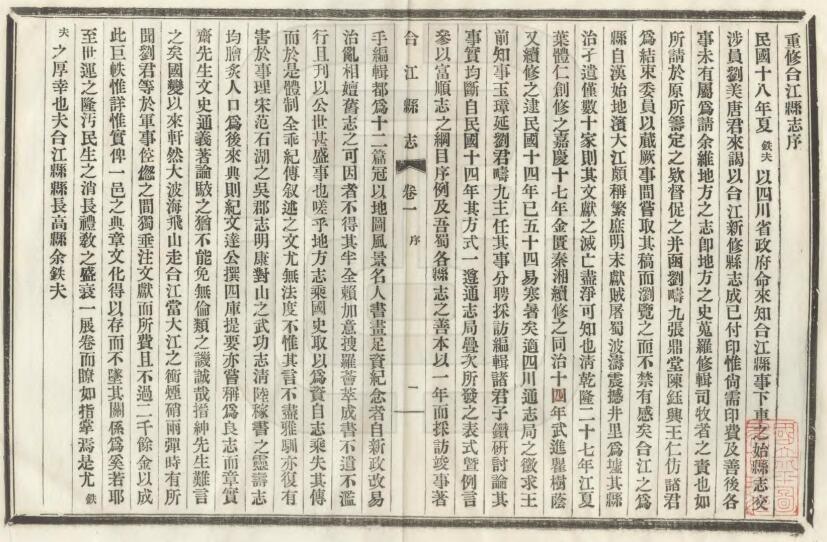 重修合江縣志序
民國十八年夏鉄夫以四川省政府命來知合江縣事下車之始縣志交
涉員劉美唐君來謁以合江新修縣志成已付印惟尙需印費及善後各
事未有屬爲請余維地方之志卽地方之史蒐羅修輯司牧者之責也如
所請於原所籌定之欵督促之并函劉疇九張鼎堂陳鈺興王仁仿諸君
爲結束委員以蕆厥事間嘗取其稿而瀏覽之而不禁有感矣合江之爲
縣自漢始地濱大江頗稱繁庶明末獻賊屠蜀波濤震撼井里爲墟其縣
治孑遺僅數十家則其文獻之滅亡盡淨可知也淸乾隆二十七年江夏
葉體仁創修之嘉慶十七年金匱秦湘續修之同治十四年武進瞿樹蔭
又續修之建民國十四年已五十四易寒暑矣適四川通志局之徵求王
前知事玉璋延劉君疇九主任其事分聘採訪編輯諸君子鑽研討論其
事實均斷自民國十四年其方式一遵通志局疊次所發之表式曁例言
參以富順志之綱目序例及吾蜀各縣志之善本以一年而採訪竣事著
合江縣志
卷一
序
一
手編輯都爲十二篇冠以地圖風景名人書畫足資紀念者自新政改易
治亂相嬗舊志之可因者不得其半全賴加意搜羅薈萃成書不遺不濫
行且刋以公世甚盛事也嗟乎地方志乘國史取以爲資自志乘失其傳
而於是體制全乖紀傳叙述之文尤無法度不惟其言不盡雅馴亦復有
害於事理宋范石湖之吳郡志明康對山之武功志淸陸稼書之靈壽志
均膾炙人口爲後來典則紀文達公撰四庫提要亦嘗稱爲良志而章實
齋先生文史通義著論駁之猶不能免無倫類之譏誠哉搢紳先生難言
之矣國變以來軒然大波海飛山走合江當大江之衝煙硝雨彈時有所
聞劉君等於軍事倥傯之間獨垂注文獻而所費且不過二千餘金以成
此巨帙惟詳惟實俾一邑之典章文化得以存而不墜其關係爲奚若耶
至世運之隆汚民生之消長禮敎之盛衰一展卷而瞭如指掌焉是尤鉄
夫之厚幸也夫合江縣縣長高縣余鉄夫